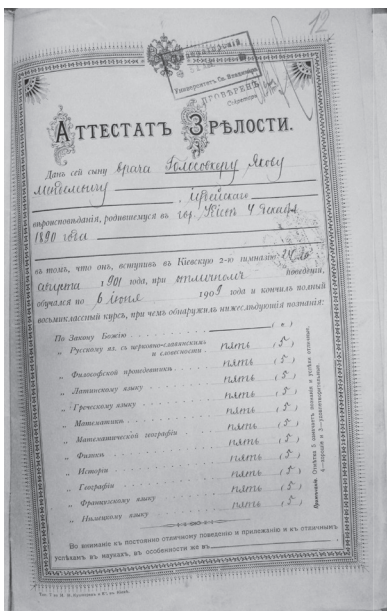 12
Университетъ Св. Владимира
ПРОВѢРЕНЪ
Секретарь
АТТЕСТАТЪ ЗРѢЛОСТИ.
Данъ сей сыну врача Голосовкеру Якову
иудейскаго
вѣроисповѣданія, родившемуся въ гор. Кіевѣ 4
1890 года
въ томъ, что онъ, вступивъ въ Кіевскую 2-ю гимназію
августа 1901 года, при отличномъ поведеніи,
обучался по 6 іюня 1909 года и кончилъ полный
восьмиклассный курсъ, при чемъ обнаружилъ нижеслѣдующія познанія:
По Закону Божію
„ Русскому яз. съ церковно-славянскимъ
и словесности пять (5)
„ Философской пропедевтикѣ пять (5)
„ Латинскому языку пять (5)
„ Греческому языку пять (5)
„ Математикѣ пять (5)
„ Математической географіи пять (5)
„ Физикѣ пять (5)
„ Исторіи пять (5)
„ Географіи пять (5)
„ Французскому языку пять (5)
„ Нѣмецкому языку пять (5)
Примѣчаніе. Отмѣтка 5 означаетъ познанія и успѣхи отличные,
4—хорошіе и 3—удовлетворительные.
Во вниманіе къ постоянно отличному поведенію и прилежанію и къ отличнымъ
успѣхамъ въ наукахъ, въ особенности же въ